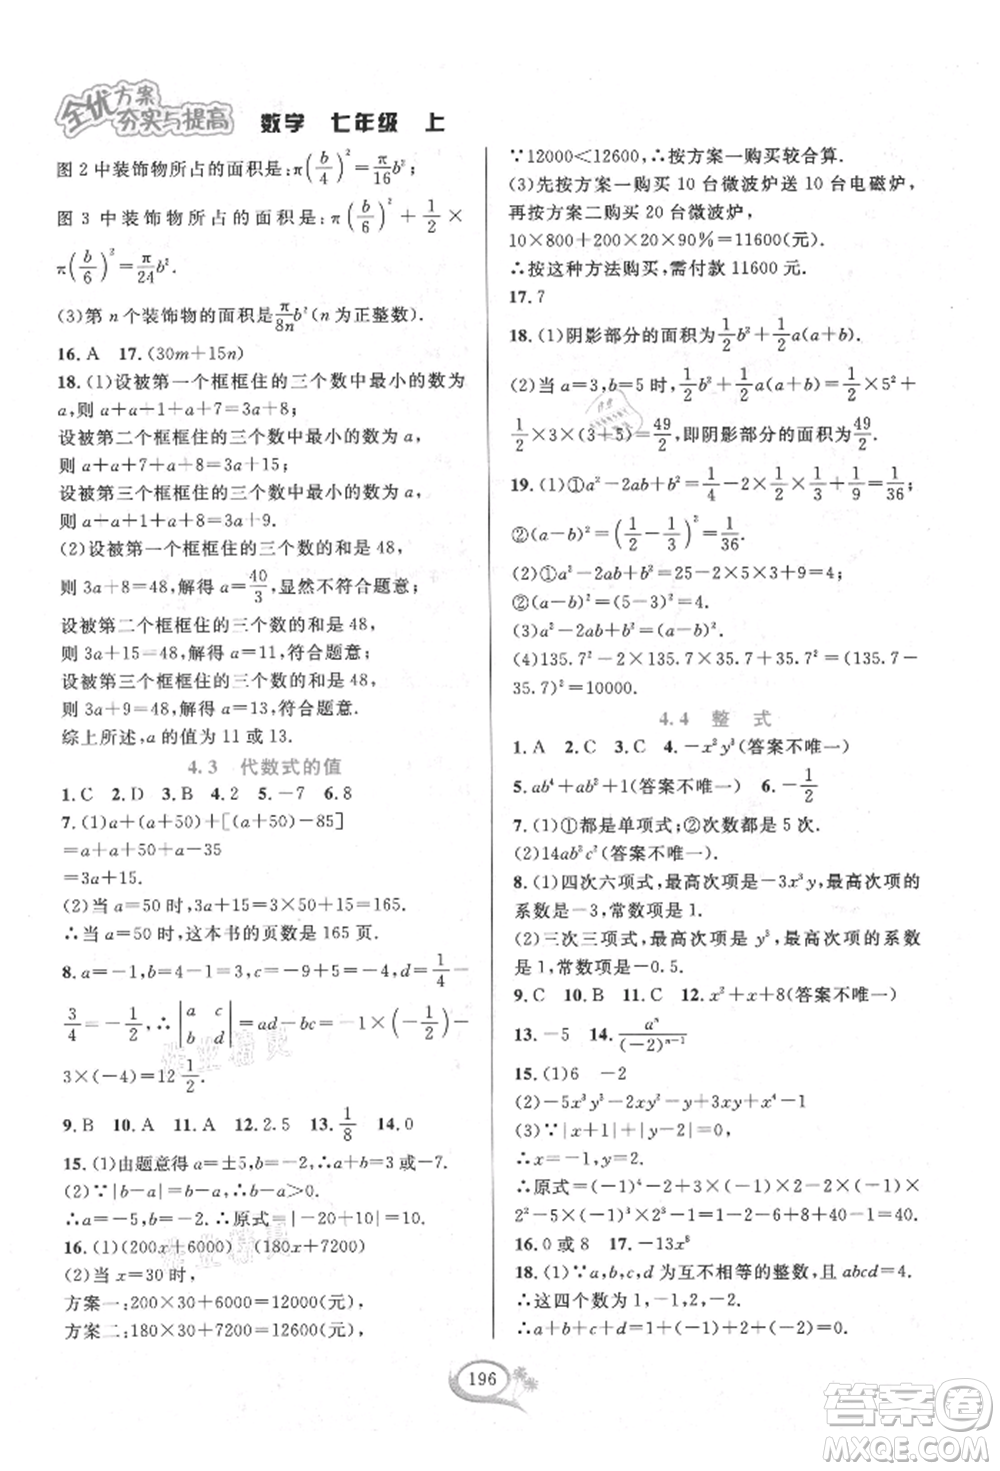 全优方案
夯实与提高 数学 七年级 上
图 2 中装饰物所占的面积是:π(b/4)²=π/16 b²;
图 3 中装饰物所占的面积是:π(b/6)²+1/2×
π(b/6)²=π/24 b².
(3)第 n 个装饰物的面积是:π/8n b²(n 为正整数).
16. A 17. (30m+15n)
18. (1)设被第一个框框住的三个数中最小的数为
a,则 a+a+1+a+7=3a+8;
设被第二个框框住的三个数中最小的数为 a,
则 a+a+7+a+8=3a+15;
设被第三个框框住的三个数中最小的数为 a,
则 a+a+1+a+8=3a+9.
(2)设被第一个框框住的三个数的和是 48,
则 3a+8=48,解得 a=40/3,显然不符合题意;
设被第二个框框住的三个数的和是 48,
则 3a+15=48,解得 a=11,符合题意;
设被第三个框框住的三个数的和是 48,
则 3a+9=48,解得 a=13,符合题意.
综上所述,a 的值为 11 或 13.
4.3 代数式的值
1. C 2. D 3. B 4. 2 5. -7 6. 8
7. (1)a+(a+50)+[(a+50)-85]
=a+a+50+a-35
=3a+15.
(2)当 a=50 时,3a+15=3×50+15=165.
∴当 a=50 时,这本书的页数是 165 页.
8. a=-1,b=4-1=3,c=-9+5=-4,d=1/4-
3/4=-1/2,∴|a c b d|=ad-bc=-1×(-1/2)-
3×(-4)=12 1/2.
9. B 10. A 11. A 12. 2.5 13. 1/8 14. 0
15. (1)由题意得 a=±5,b=10,∴a+b=15 或 5.
(2)∵|b-a|=b-a,∴b-a>0.
∴a=-5,b=2,∴原式=|-20+10|=10.
16. (1)(200x+6000) (180x+7200)
(2)当 x=30 时,
方案一:200×30+6000=12000(元),
方案二:180×30+7200=12600(元),
∵12000<12600,∴按方案一购买较合算.
(3)先按方案一购买 10 台微波炉送 10 台电磁炉,
再按方案二购买 20 台微波炉,
10×800+200×20×90%=11600(元).
∴按这种方法购买,需付款 11600 元.
17. 7
18. (1)阴影部分的面积为1/2 b²+1/2 a(a+b).
(2)当 a=3,b=5 时,1/2 b²+1/2 a(a+b)=1/2×25+
1/2×3×(3+5)=49/2,即阴影部分的面积为49/2.
19. (1)①a²-2ab+b²=1/4-2×1/2×1/3+1/9=1/36;
②(a-b)²=(1/2-1/3)²=1/36.
(2)①a²-2ab+b²=25-2×5×3+9=4;
②(a-b)²=(5-3)²=4.
(3)a²-2ab+b²=(a-b)².
(4)135.7²-2×135.7×35.7+35.7²=(135.7-
35.7)²=10000.
4.4 整 式
1. A 2. C 3. C 4. -x²y³(答案不唯一)
5. ab⁴+ab³+ab²(答案不唯一) 6. -1/2
7. (1)①都是单项式;②次数都是 5 次.
(2)14ab²c²(答案不唯一).
8. (1)四次六项式,最高次项是-3x³y,最高次项的
系数是-3,常数项是1.
(2)三次三项式,最高次项是 y³,最高次项的系数
是 1,常数项是-0.5.
9. C 10. B 11. C 12. x²+x+8(答案不唯一)
13. -5 14. aⁿ/(-2)ⁿ⁻¹
15. (1)6 -2
16. 0 或 8 17. -13x⁸
18. (1)∵a,b,c,d 为互不相等的整数,且 abcd=4.
∴这四个数为 1,-1,2,-2.
∴a+b+c+d=1-1+2-2=0.
196
答案圈
MXQE.COM